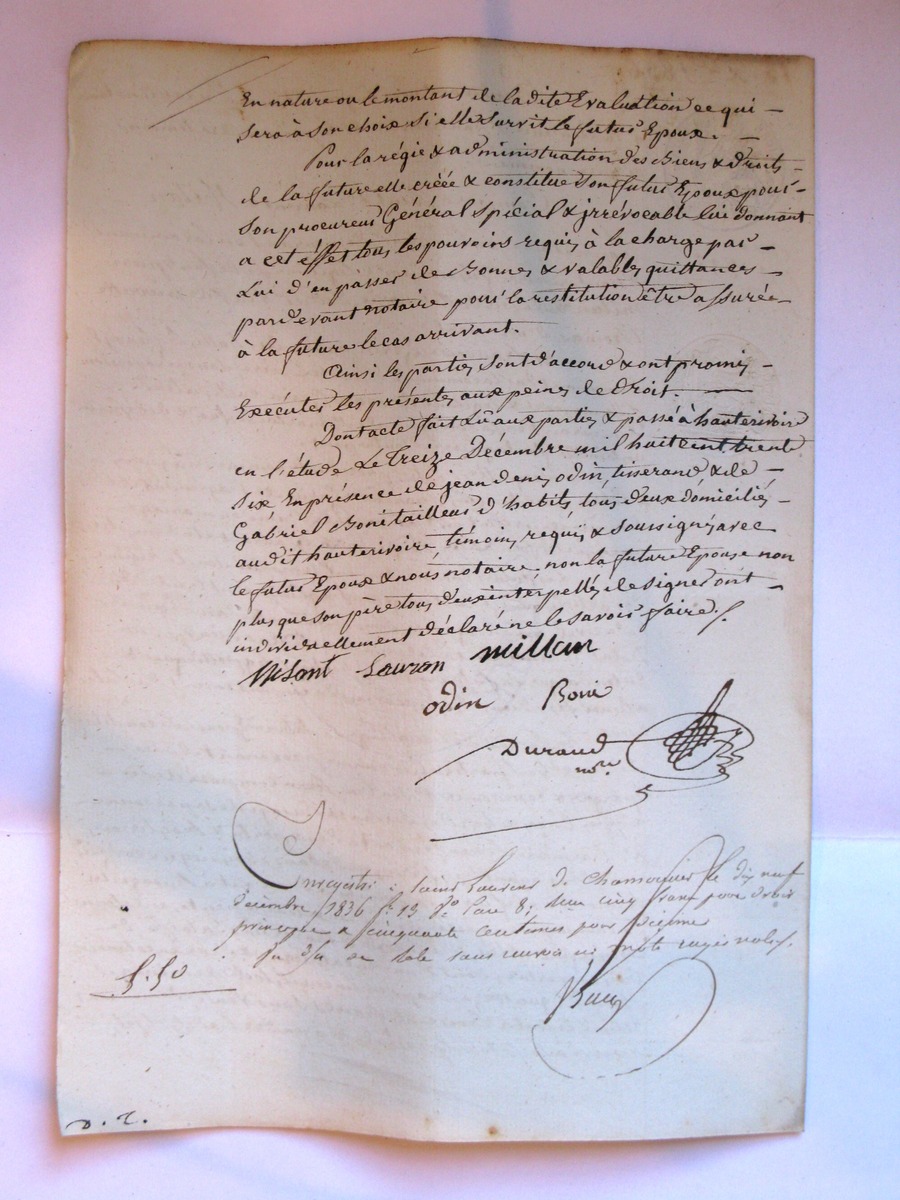 En nature ou le montant de la dite Evaluation ce qui —
sera à son choix si elle survit le futur Epoux. —
Pour la régie & administration des Biens & droits —
de la future elle créée & constitue son futur Epoux pour —
son procureur Général spécial & irrévocable lui donnant
a cet éffet tous les pouvoirs requis à la charge par —
Lui d'en passer de Bonnes & valables quittances —
pardevant notaire pour la restitution être assurée —
à la future le cas arrivant.
Ainsi les parties sont d'accord & ont promis —
Exécuter les présentes aux peines de Droit. —
Dont acte fait Lû aux parties & passé à hauterivoire
en l'étude Le Treize Décembre mil huit cent trente
six, En présence de jean denis odin, tisserand & de —
Gabriel Boné tailleur d'habits, tous deux domiciliés —
audit hauterivoire, témoins requis & soussignés avec
le futur Epoux & nous notaire, non la future Epouse non
plus que son père tous deux interpellés de signer ont —
individuellement déclaré ne le savoir faire./.
millan
odin Boné
Durand
nre.
Enregistré à saint Laurent de Chamousset le dix neuf
décembre 1836 f° 13 Vo Case 8; cinq francs pour droit
principal & cinquante centimes pour décime
5.50
D. T.